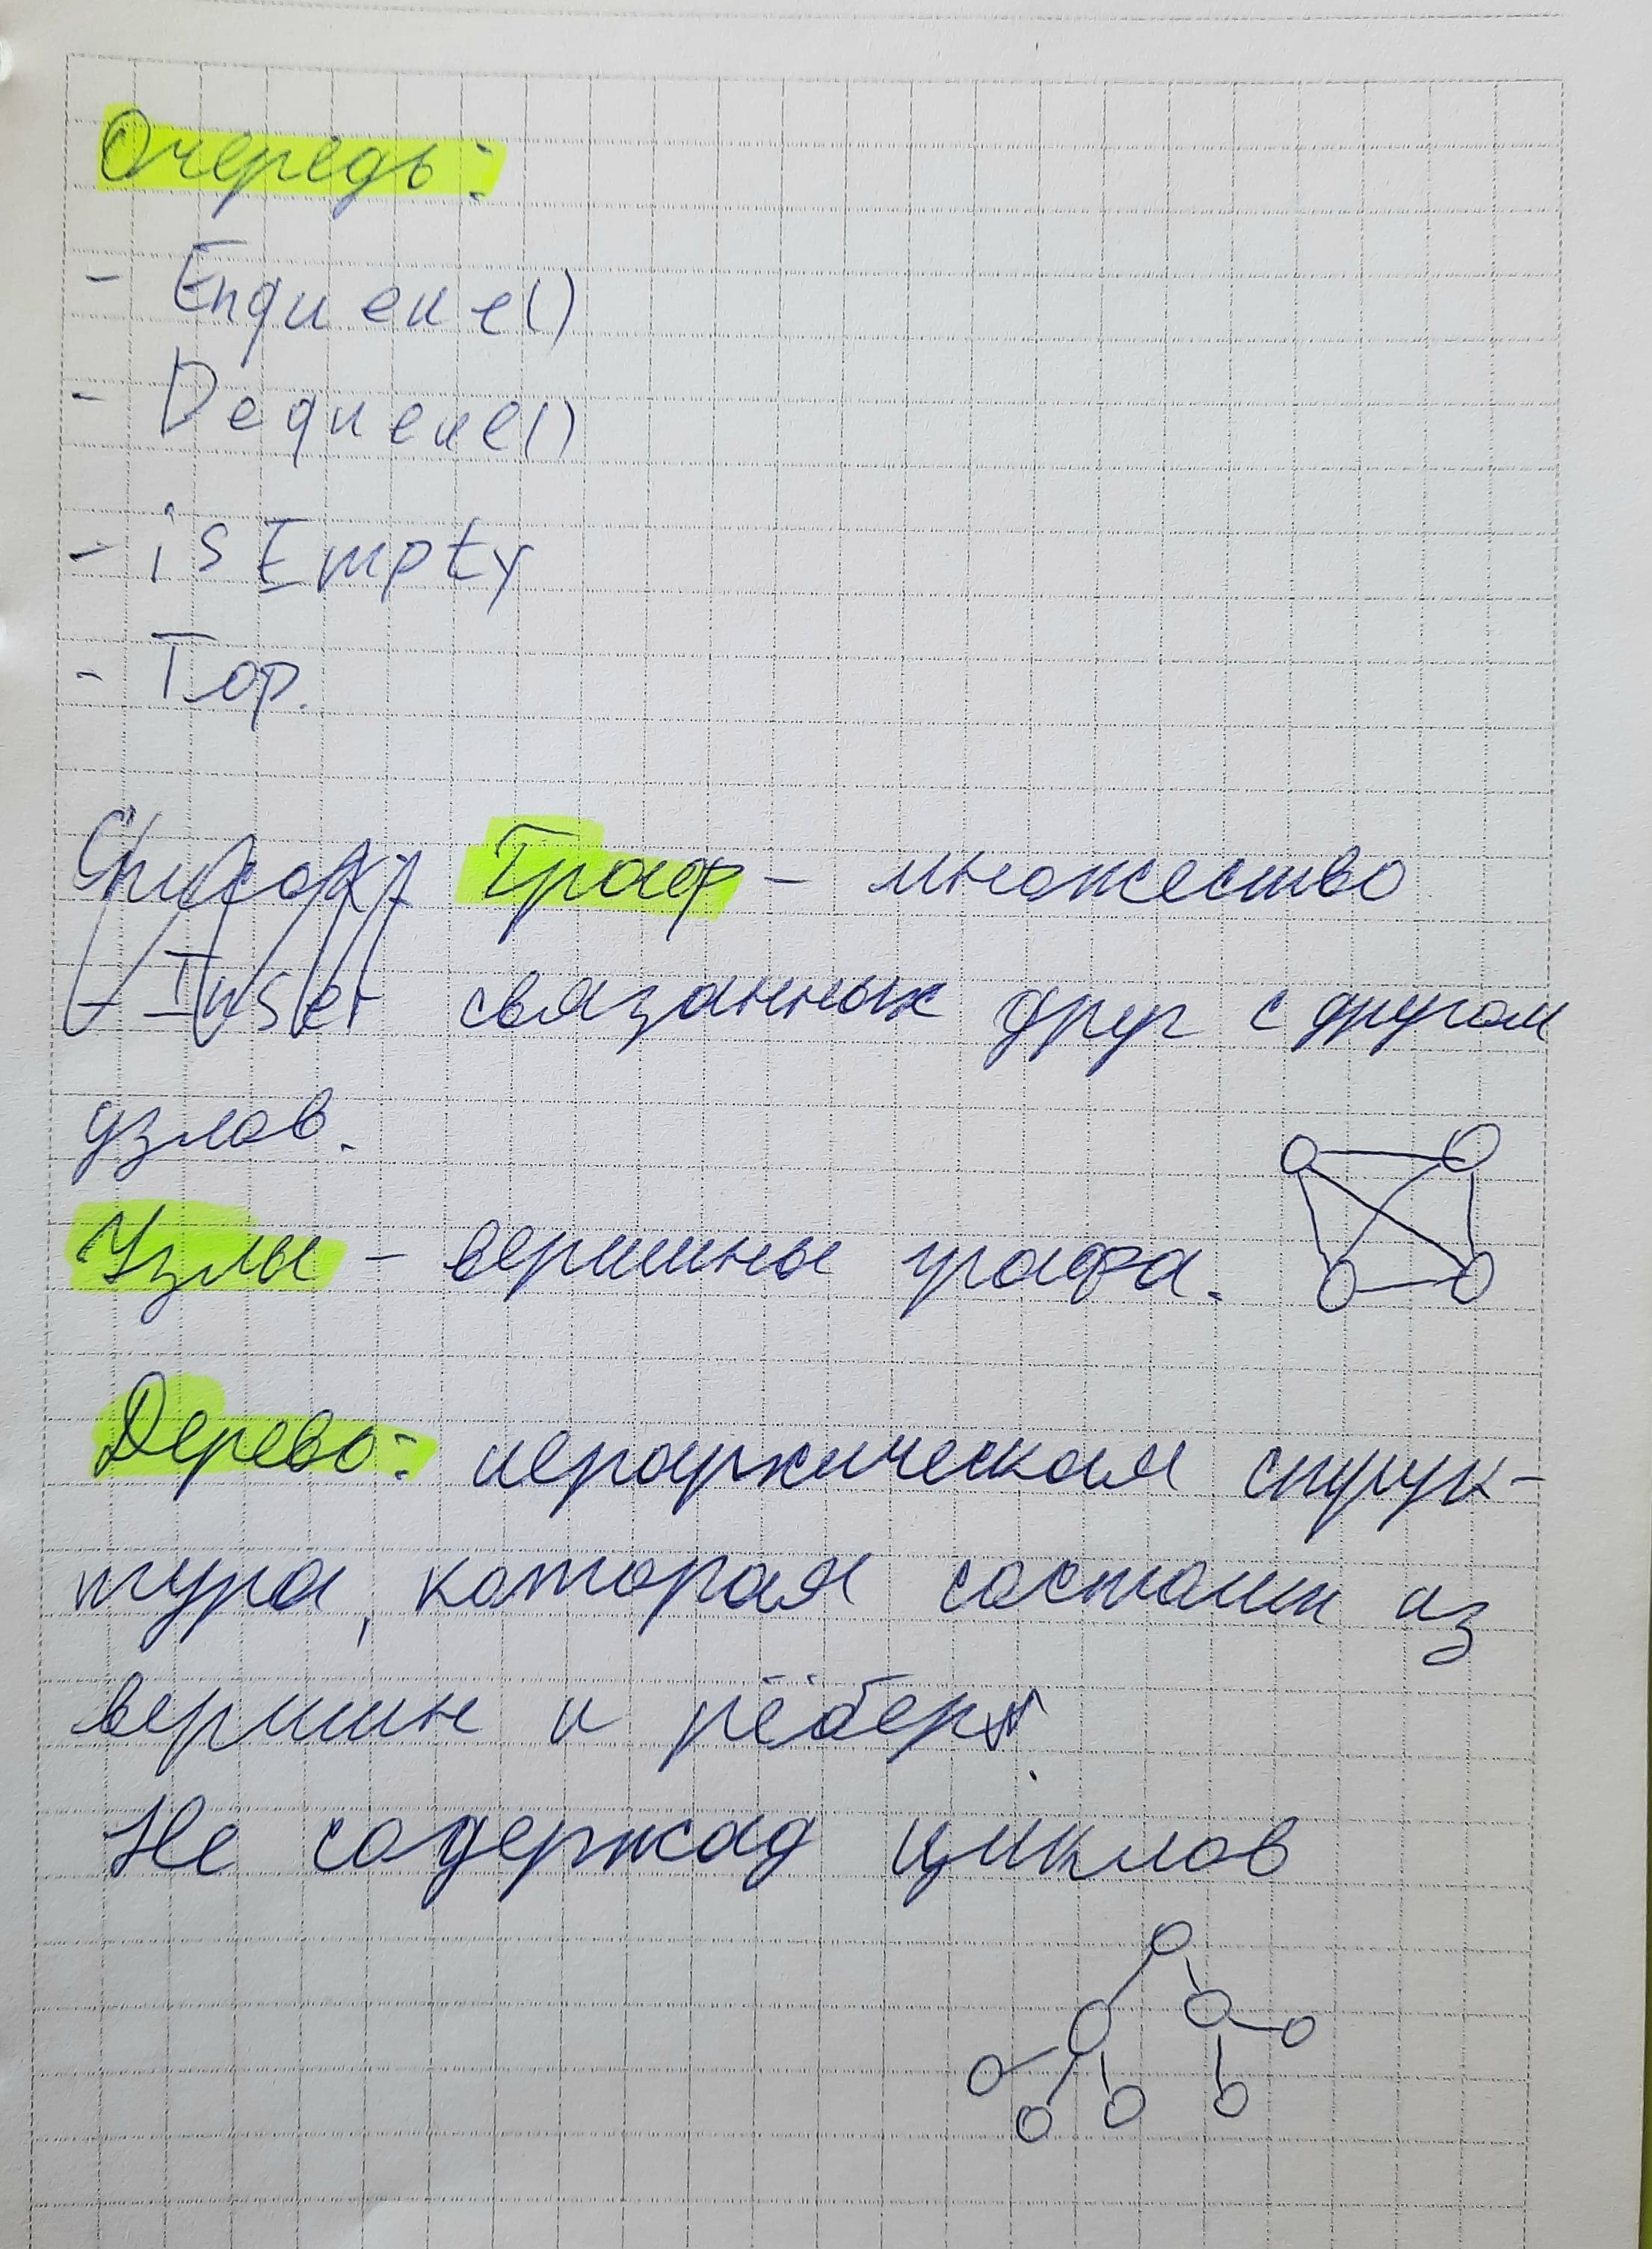 Очередь:
- Enqueue()
- Dequeue()
- isEmpty
- Top.
Список: Граф - множество
- Inser связанных друг с другом
узлов.
Узлы - вершины графа.
Дерево: иерархическая струк-
тура, которая состоит из
вершин и рёбер.
Не содержад циклов